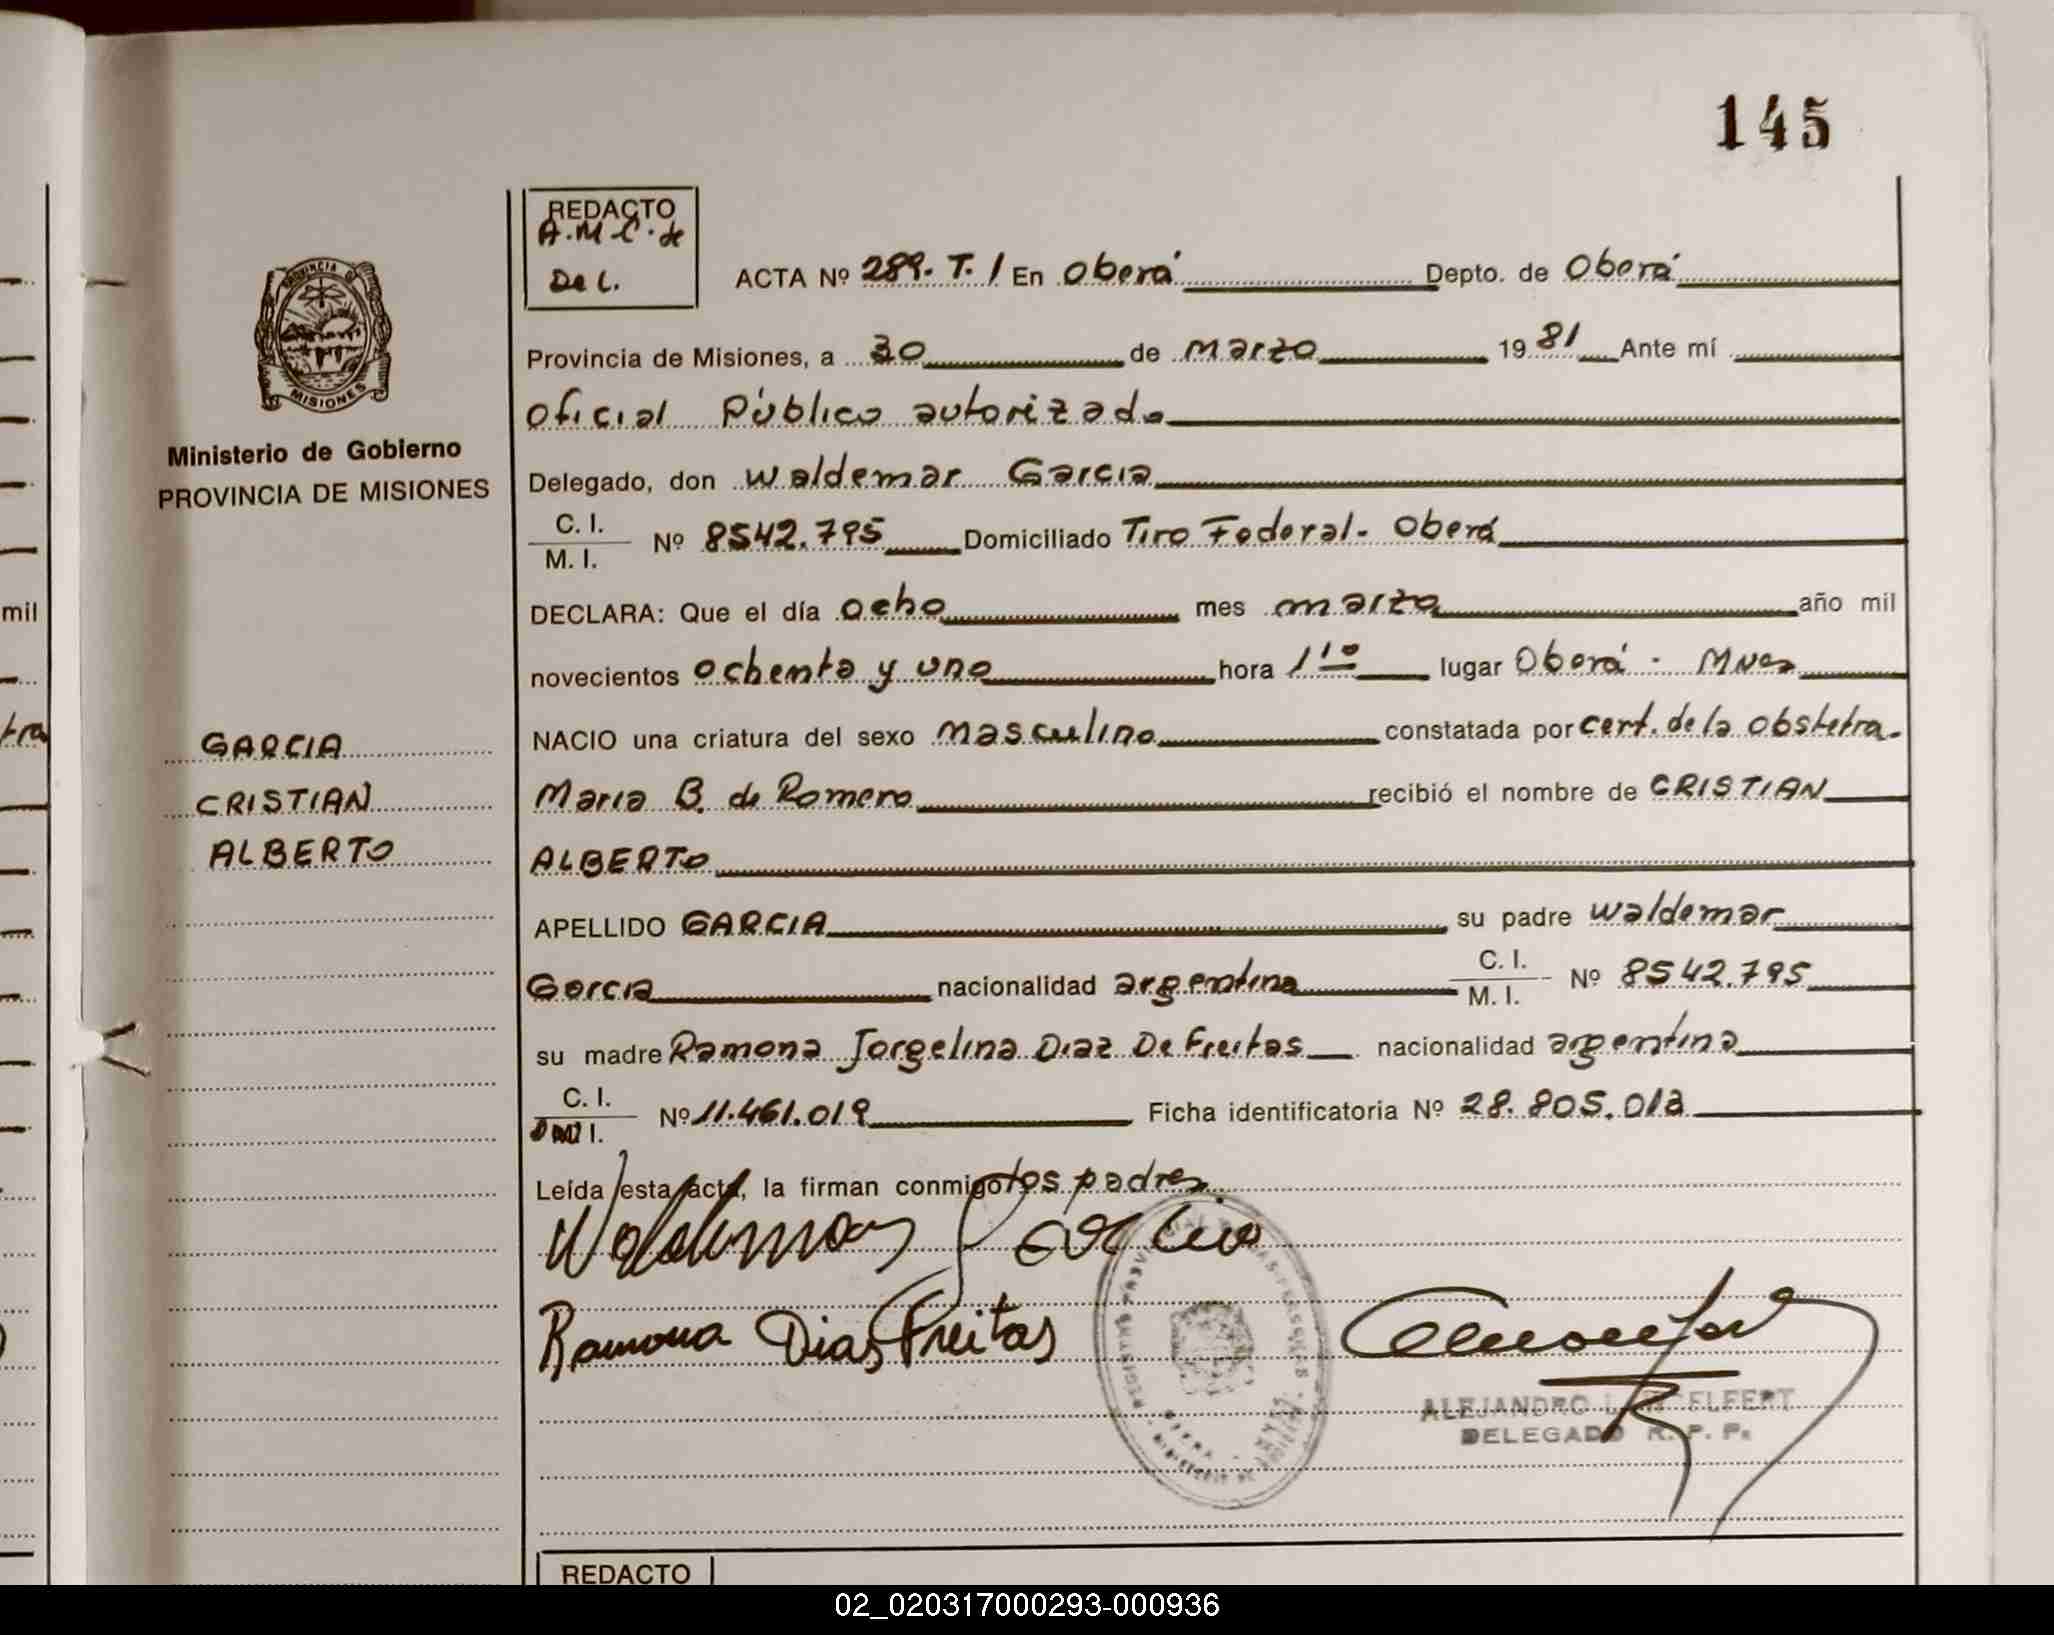 145
REDACTO
A.M.C. de
De L.
ACTA Nº 289. T. 1 En Oberá Depto. de Oberá
Provincia de Misiones, a 30 de marzo 1981 Ante mí
Oficial Público autorizado
Delegado, don Waldemar Garcia
C. I.
M. I.
Nº 8542.795 Domiciliado Tiro Federal - Oberá
DECLARA: Que el día ocho mes marzo año mil
novecientos ochenta y uno hora 1 10 lugar Oberá - Mnes
NACIO una criatura del sexo masculino constatada por cert. de la obstetra.
Maria B. de Romero recibió el nombre de CRISTIAN
ALBERTO
APELLIDO GARCIA su padre Waldemar
Garcia nacionalidad argentina C. I. M. I. Nº 8542.795
su madre Ramona Jorgelina Diaz De Freitas nacionalidad argentina
C. I.
DNI I.
Nº 11.461.019 Ficha identificatoria Nº 28.805.018
Leída esta acta, la firman conmigo los padres
Waldemar Garcia
Ramona Dias Freitas
ALEJANDRO L. ELFERT
DELEGADO R. P. P.
REDACTO
PROVINCIA DE
MISIONES
Ministerio de Gobierno
PROVINCIA DE MISIONES
GARCIA
CRISTIAN
ALBERTO
mil
tra
02_020317000293-000936